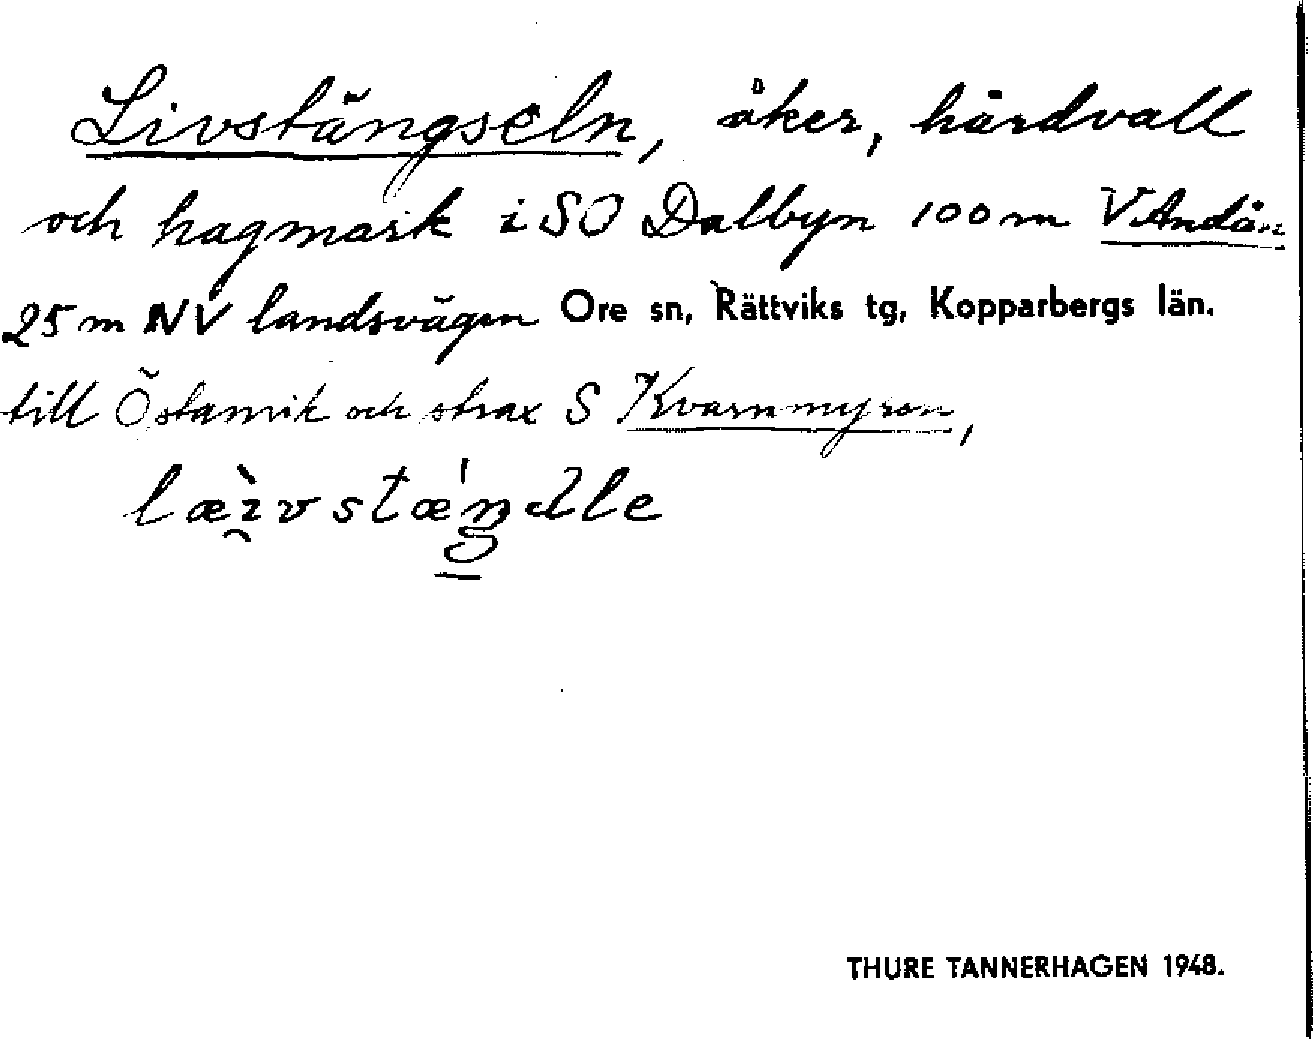 Livstängseln, åker, hårdvall
och hagmark i SO Dalbyn 100 m V Andån
25 m NV landsvägen Ore sn, Rättviks tg, Kopparbergs län.
till Östanvik och strax S Kvarnmyren,
THURE TANNERHAGEN 1948.